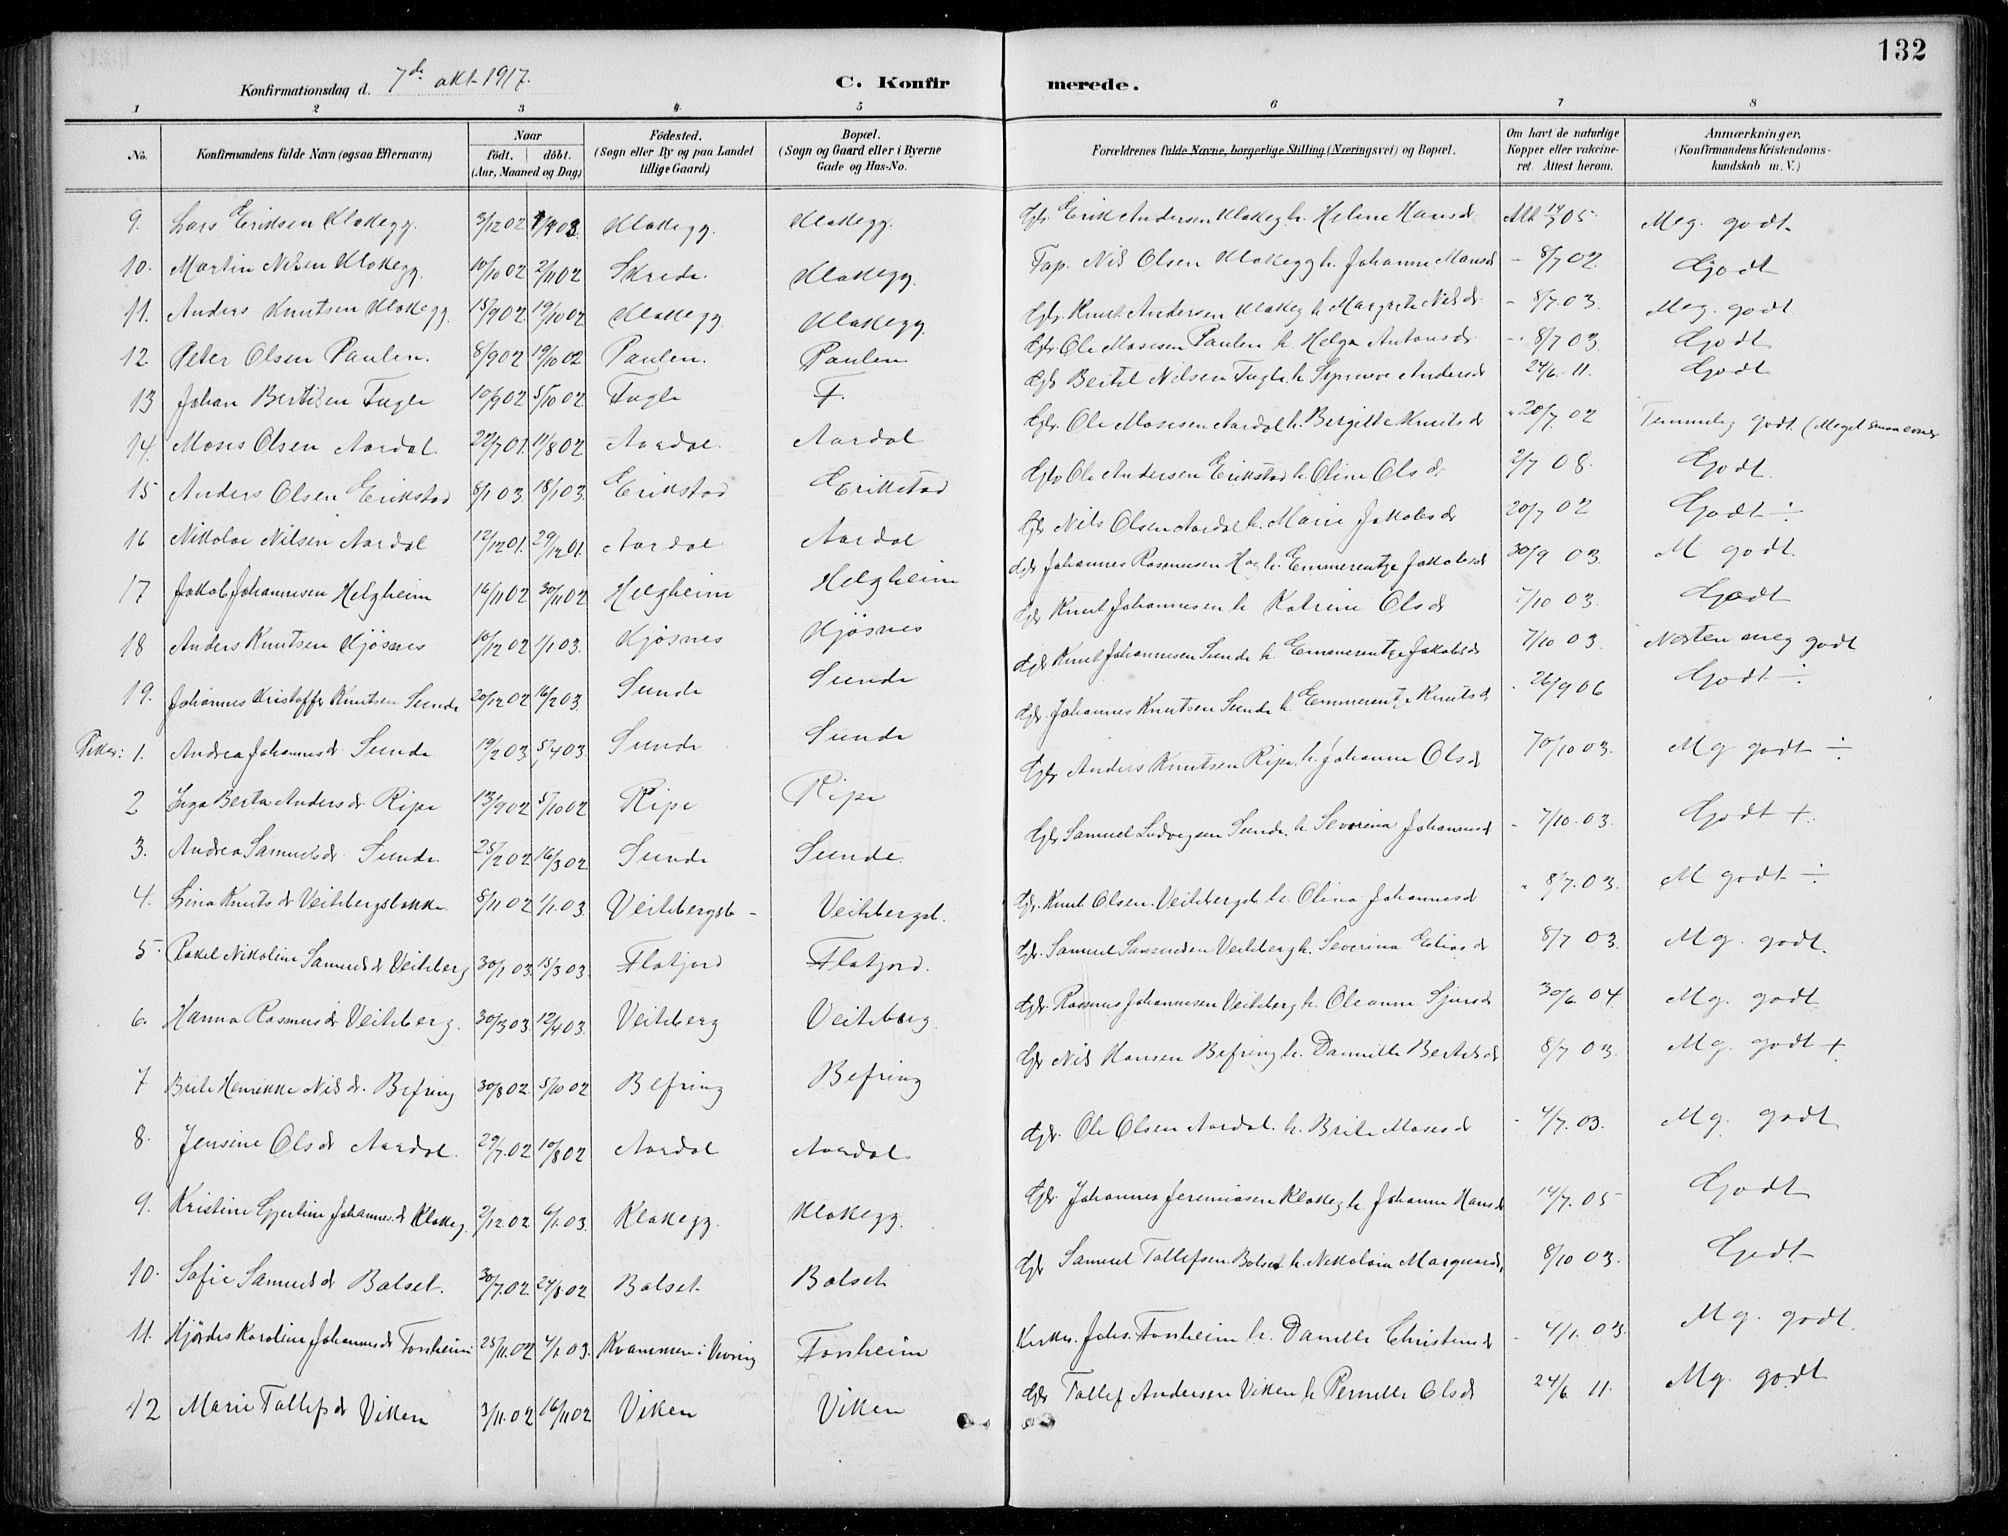 132
Konfirmationsdag d. 7de okt 1917.
C. Konfirmerede.
1 2 3 4 5 6 7 8
No. Konfirmandens fulde Navn (ogsaa Efternavn) Naar födt. döbt. (Aar, Maaned og Dag) Födested. (Sogn eller By og paa Landet tillige Gaard) Bopæl. (Sogn og Gaard eller i Byerne Gade og Hus-No. Forældrenes fulde Navne, borgerlige Stilling (Næringsvei) og Bopæl. Om havt de naturlige Kopper eller vakcineret. Attest herom. Anmærkninger. (Konfirmandens Kristendomskundskab m. V.)
9. Lars Eriksen Klakegg. 3/12 02 Klakegg. Klakegg. Gbr. Erik Andersen Klakeg h. Helene Hansd. Att 14/7 05 Meg. godt
10. Martin Nilsen Klakegg. 10/10 02 2/11 02 Skrede. Klakegg. Nils Olsen Klakegg h. Johanne Monsd - 8/7 02 Godt
11. Anders Knutsen Klakegg. 15/9 02. 19/10 02 Klakegg Klakegg Gbr. Knut Andersen Klakeg h Margrete Nilsd. - 8/7. 03. Meg. godt
12 Peter Olsen Paulen. 8/9 02 19/10 02 Paulen. Paulen Gbr Ole Mosesen Paulen h. Helga Antonsd. - 8/7 03. Godt
13 Johan Bertilsen Fugle 10/9 02 5/10 02 Fugle F. Gbr Bertil Nilsen Fugle h. Synneve Andersd 24/6. 11. Godt
14. Moses Olsen Aardal 22/7 01. 11/8 02 Aardal. Aardal Gbr. Ole Mosesen Aardal h. Bergitte Knutsd 20/7 02 Temmelig godt. (Meget smaa evner
15 Anders Olsen Erikstad 8/1 03. 18/1 03. Erikstad Erikstad Gbr Ole Andersen Erikstad h. Oline Olsd. 2/7 08. Godt
16 Nikolai Nilsen Aardal 12/12 01. 29/12 01. Aardal Aardal Gbr Nils Olsen Aardal h. Marie Jakobsd 20/7 02 Godt ÷
17 Jakob Johannesen Helgheim 16/11 02 30/11 02 Helgheim Helgheim Gbr Johannes Rasmusen Hag h. Emmerentze Jakobsd 30/9 03. M godt.
18 Anders Knutsen Kjøsnes 10/12 02 1/1 03. Kjøsnes Kjøsnes Gbr Knut Johannesen h Katrine Olsd 7/10 03. Godt
19. Johannes Kristoffer Knutsen Sunde 20/12 02 16/2 03. Sunde Sunde Gbr Knut Johannesen Sunde h. Emmerentze Jakobsd 7/10 03. Næsten meg godt
Piker: 1. Andrea Johannesd. Sunde 19/2 03. 5/4 03. Sunde Sunde Gbr. Johannes Knutsen Sunde h. Emmerentze Knutsd 26/9 06 Godt ÷
2 Inga Berta Andersd. Ripe 13/9 02 5/10 02 Ripe Ripe Gbr Anders Knutsen Ripe h. Johanne Olsd 10/10 03. Mg godt ÷
3. Andrea Samuelsd. Sunde. 25/2 02 16/3 02 Sunde Sunde. Gbr Samuel Ludvigsen Sunde. h. Severina Johannesd - 7/10. 03. Godt +.
4. Lina Knutsd Veitebergsbakke. 8/11 02 1/1. 03. Veitebergsb- Veitebergsb. Gbr. Knut Olsen Veitebergsb h. Olina Johannesd - 8/7. 03. M godt ÷
5. Rakel Nikoline Samuelsd Veiteberg 30/1 03. 15/3 03. Flatjord Flatjord. Gbr. Samuel Veiteberg h. Severina Eliasd 8/7 03. Mg. godt.
6. Hanna Rasmusd Veiteberg. 30/3 03. 12/4 03. Veiteberg Veiteberg. Gbr. Rasmus Johannesen Veiteberg h. Oleanne Sjursd 30/6 04 Mg. godt
7 Brite Henrikke Nilsd. Befring 30/8 02. 5/10 02 Befring Befring Gbr Nils Hansen Befring h. Danielle Bertelsd 8/7 03. Mg. godt +
8. Jensine Olsd Aardal. 29/7. 02 10/8 02 Aardal Aardal. Gbr. Ole Olsen Aardal. h. Brite Mosesd - 4/7. 03. Mg. godt
9. Kristine Gjertine Johannes.d Klakeg. 2/12. 02. 6/1. 03. Klakegg. Klakegg. Gbr. Johannes Jeremiasen Klakeg h Johanne Hansd 14/7. 05 Godt
10. Sofie Samuelsd Bolset. 30/7. 02 24/8. 02 Bolset Bolset Gbr Samuel Tollefsen Bolset h. Nikolina 8/10 03. Godt
11. Hjørdis Karoline Johannesd Fonheim 25/11. 02 4/1. 03. Kvammen i Fonheim Kirkes. Johs. Fonheim h. Danielle Christensd - 4/1. 03. Mg. godt
12 Marie Tollefsd Viken 3/11. 02 16/11 02 Viken Viken Gbr Tollef Andersen Viken h Pernille Olsd 24/6 11. Mg. godt